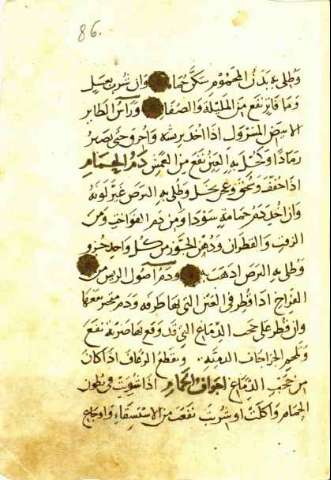 86.
وطلي به بدن المحموم سكن حماه وان شرب بعسل
وما فاتر نفع من المليلة والصفار وراس الطاير
الابيض المنزول اذا اخذ بريشه واحرق حتى يصير
رمادا وكحل به العين نفع من العمش دم الحمام
اذا جفف وعجن بخل وطلي به البرص غير لونه
وان اخذ دم حمامة سودا ومن دم الفواخت ومن
الزفت والقطران ودهن الجوز من كل واحد جزو
وطلي به البرص اذهبه ودم اصول الريش من
الفراخ اذا قطر في العين التي بها طرفه ودم منجمد معها
وان قطر على حجب الدماغ التي قد وقع بها ضربة نفع
ويلحم الجراحات ويقطع الرعاف اذا كان
من حجب الدماغ اجواف الحمام اذا شويت في بطون
الحمام واكلت او شربت نفعت من الاستسقاء واوجاع